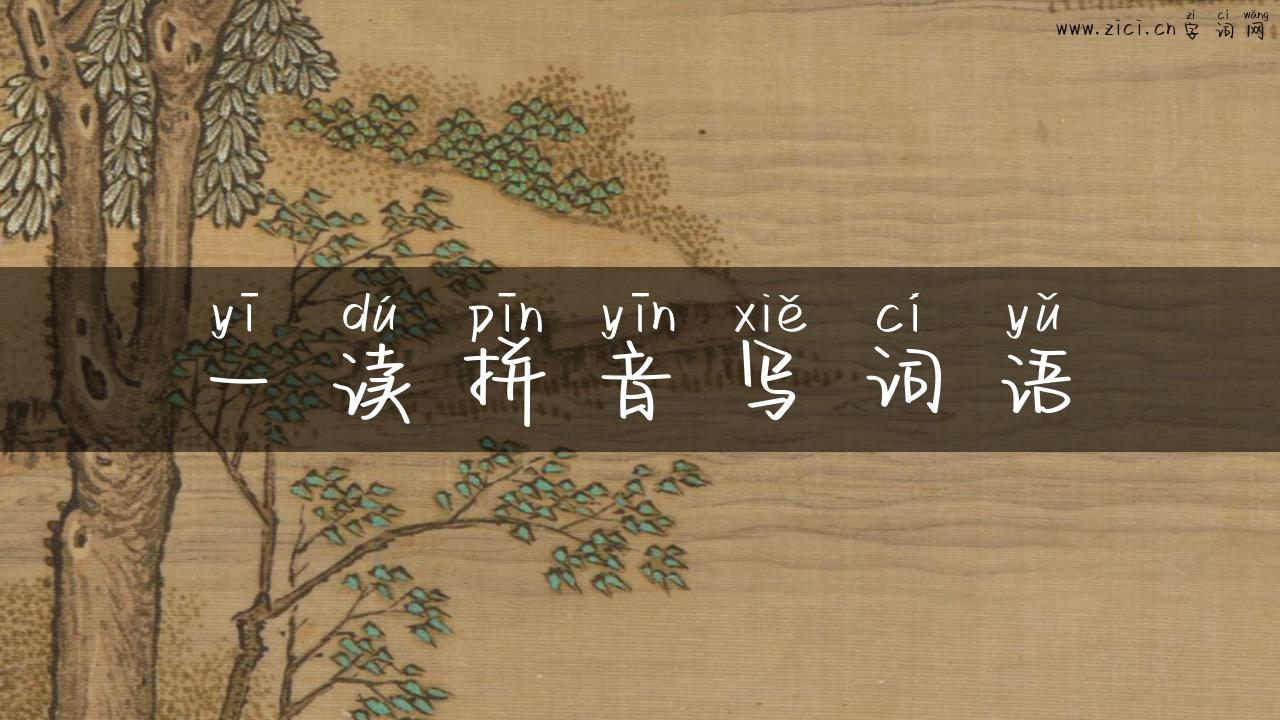 zì cí wǎng
www.zici.cn 字词网
yī dú pīn yīn xiě cí yǔ
一读拼音写词语